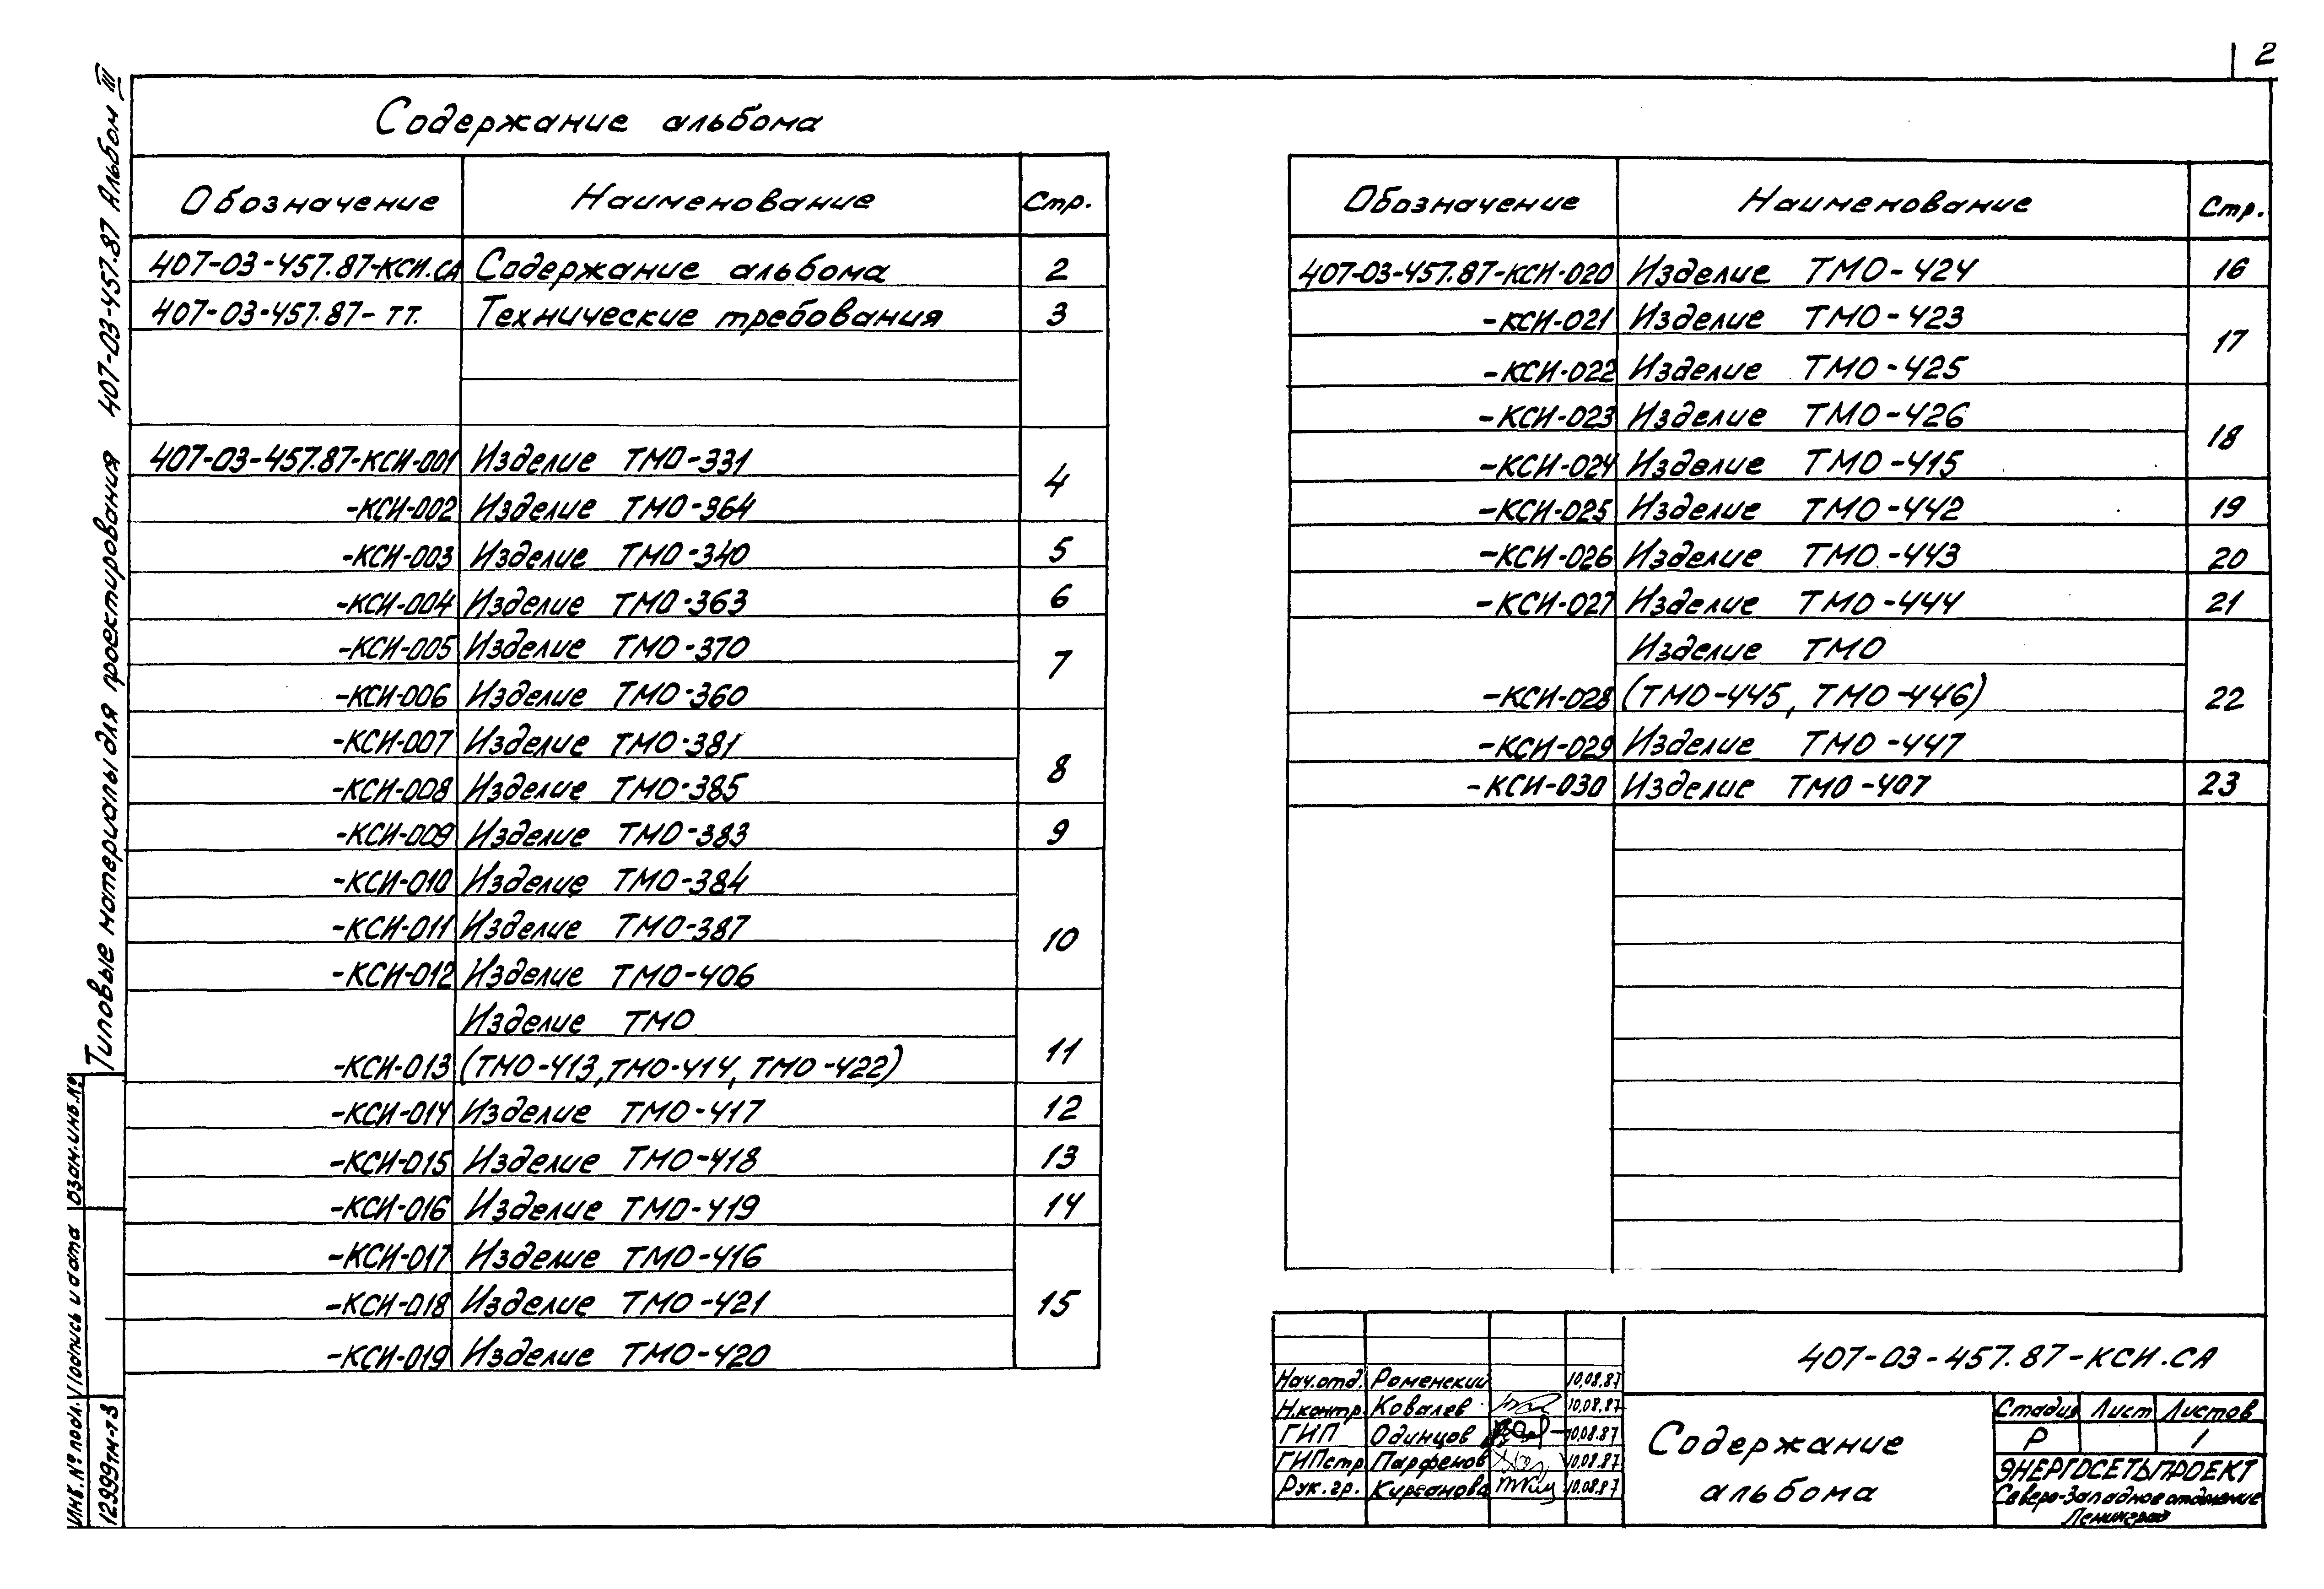 2
Содержание альбома
Обозначение Наименование Стр.
407-03-457.87-КСИ.СА Содержание альбома 2
407-03-457.87-ТТ. Технические требования 3
407-03-457.87-КСИ-001 Изделие ТМО-331 4
-КСИ-002 Изделие ТМО-364
-КСИ-003 Изделие ТМО-340 5
-КСИ-004 Изделие ТМО-363 6
-КСИ-005 Изделие ТМО-370 7
-КСИ-006 Изделие ТМО-360
-КСИ-007 Изделие ТМО-381 8
-КСИ-008 Изделие ТМО-385
-КСИ-009 Изделие ТМО-383 9
-КСИ-010 Изделие ТМО-384
-КСИ-011 Изделие ТМО-387 10
-КСИ-012 Изделие ТМО-406
Изделие ТМО
-КСИ-013 (ТМО-413, ТМО-414, ТМО-422) 11
-КСИ-014 Изделие ТМО-417 12
-КСИ-015 Изделие ТМО-418 13
-КСИ-016 Изделие ТМО-419 14
-КСИ-017 Изделие ТМО-416
-КСИ-018 Изделие ТМО-421 15
-КСИ-019 Изделие ТМО-420
Обозначение Наименование Стр.
407-03-457.87-КСИ-020 Изделие ТМО-424 16
-КСИ-021 Изделие ТМО-423 17
-КСИ-022 Изделие ТМО-425
-КСИ-023 Изделие ТМО-426 18
-КСИ-024 Изделие ТМО-415
-КСИ-025 Изделие ТМО-442 19
-КСИ-026 Изделие ТМО-443 20
-КСИ-027 Изделие ТМО-444 21
Изделие ТМО
-КСИ-028 (ТМО-445, ТМО-446) 22
-КСИ-029 Изделие ТМО-447
-КСИ-030 Изделие ТМО-407 23
407-03-457.87-КСИ.СА
Нач.отд. Роменский 10.08.87
Н.контр. Ковалев 10.08.87
ГИП Одинцов 10.08.87
ГИПстр. Парфенов 10.08.87
Рук.гр. Кирсанова 10.08.87
Содержание
альбома
Стадия Лист Листов
Р 1
ЭНЕРГОСЕТЬПРОЕКТ
Северо-Западное отделение
Ленинград
Типовые материалы для проектирования 407-03-457.87 Альбом III
Инв.№ подл. Подпись и дата Взам.инв.№
12999тм-т3